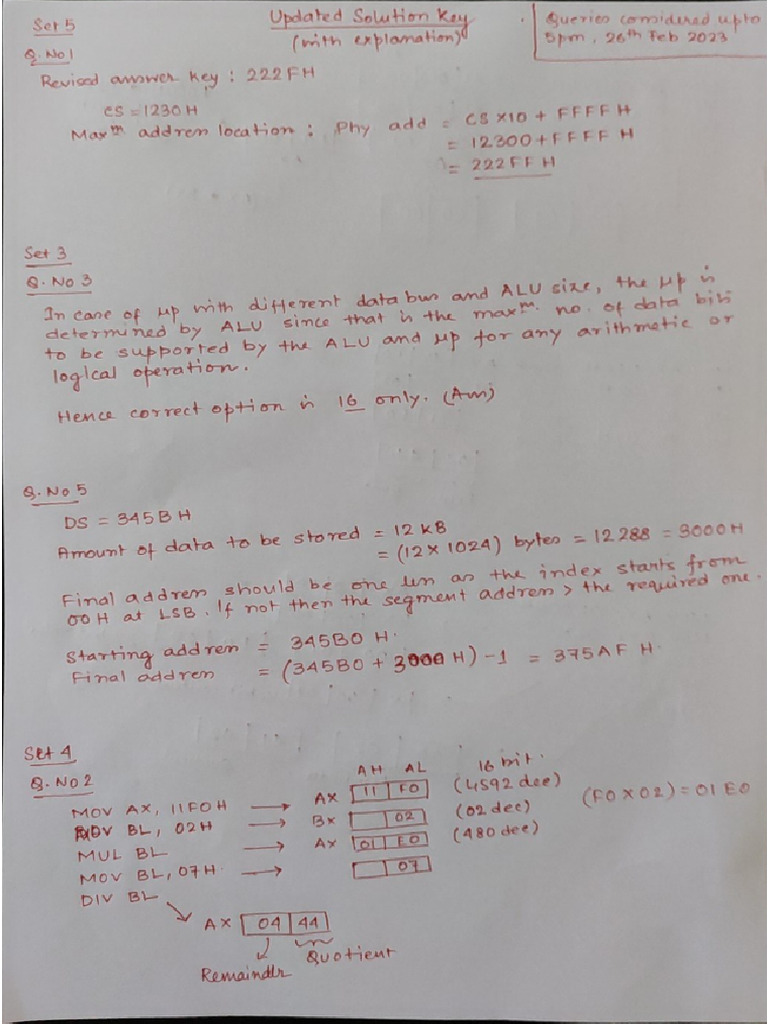 Set 5
Updated Solution Key
(with explanation)
Queries considered upto
5pm, 26th Feb 2023
Q. No 1
Revised answer key : 222FFH
CS = 1230 H
Maxm address location : Phy add = CS X10 + FFFF H
= 12300 + FFFF H
= 222FF H
Set 3
Q. No 3
In case of μp with different data bus and ALU size, the μp is
determined by ALU since that is the maxm. no. of data bits
to be supported by the ALU and μp for any arithmetic or
logical operation.
Hence correct option is 16 only. (Ans)
Q. No 5
DS = 345B H
Amount of data to be stored = 12 kB
= (12 X 1024) bytes = 12288 = 3000 H
Final address should be one less as the index starts from
00H at LSB. If not then the segment address > the required one.
Starting address = 345B0 H.
Final address = (345B0 + 3000 H) - 1 = 375AF H.
Set 4
Q. No 2
AH AL 16 bit.
MOV AX, 11F0H → AX 11 F0 (4592 dec)
MOV BL, 02H → BX 02 (02 dec) (F0 X 02) = 01 E0
MUL BL → AX 01 E0 (480 dec)
MOV BL, 07H → 07
DIV BL
AX 04 44
Quotient
Remainder